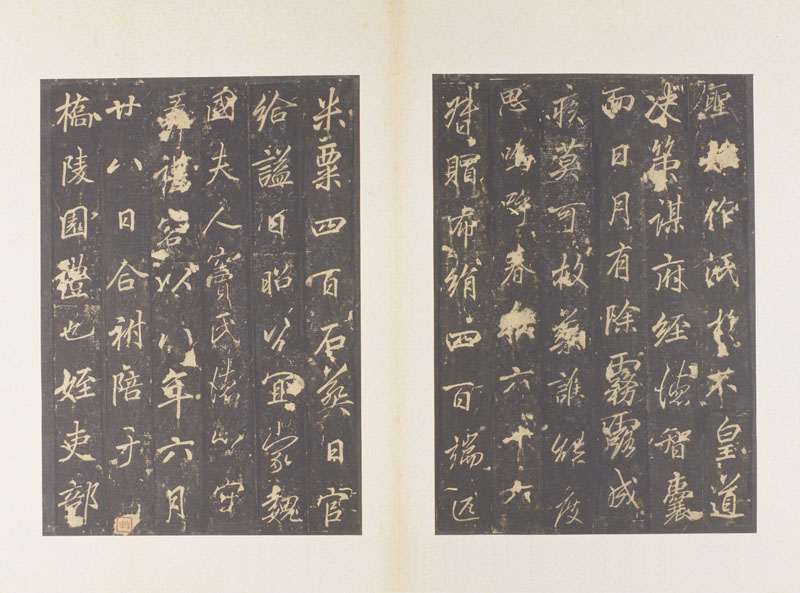 聖作於不皇道
決策謀府經德智囊
而日月有除霧露成
疾莫可救藥誰度
思嗚呼春秋六十六
贈賵布絹四百端匹
米粟四百石葬日官
給諡曰昭公宜家魏
國夫人竇氏德心守
彝禮容以八年六月
廿八日合祔陪于
橋陵園禮也姪吏部